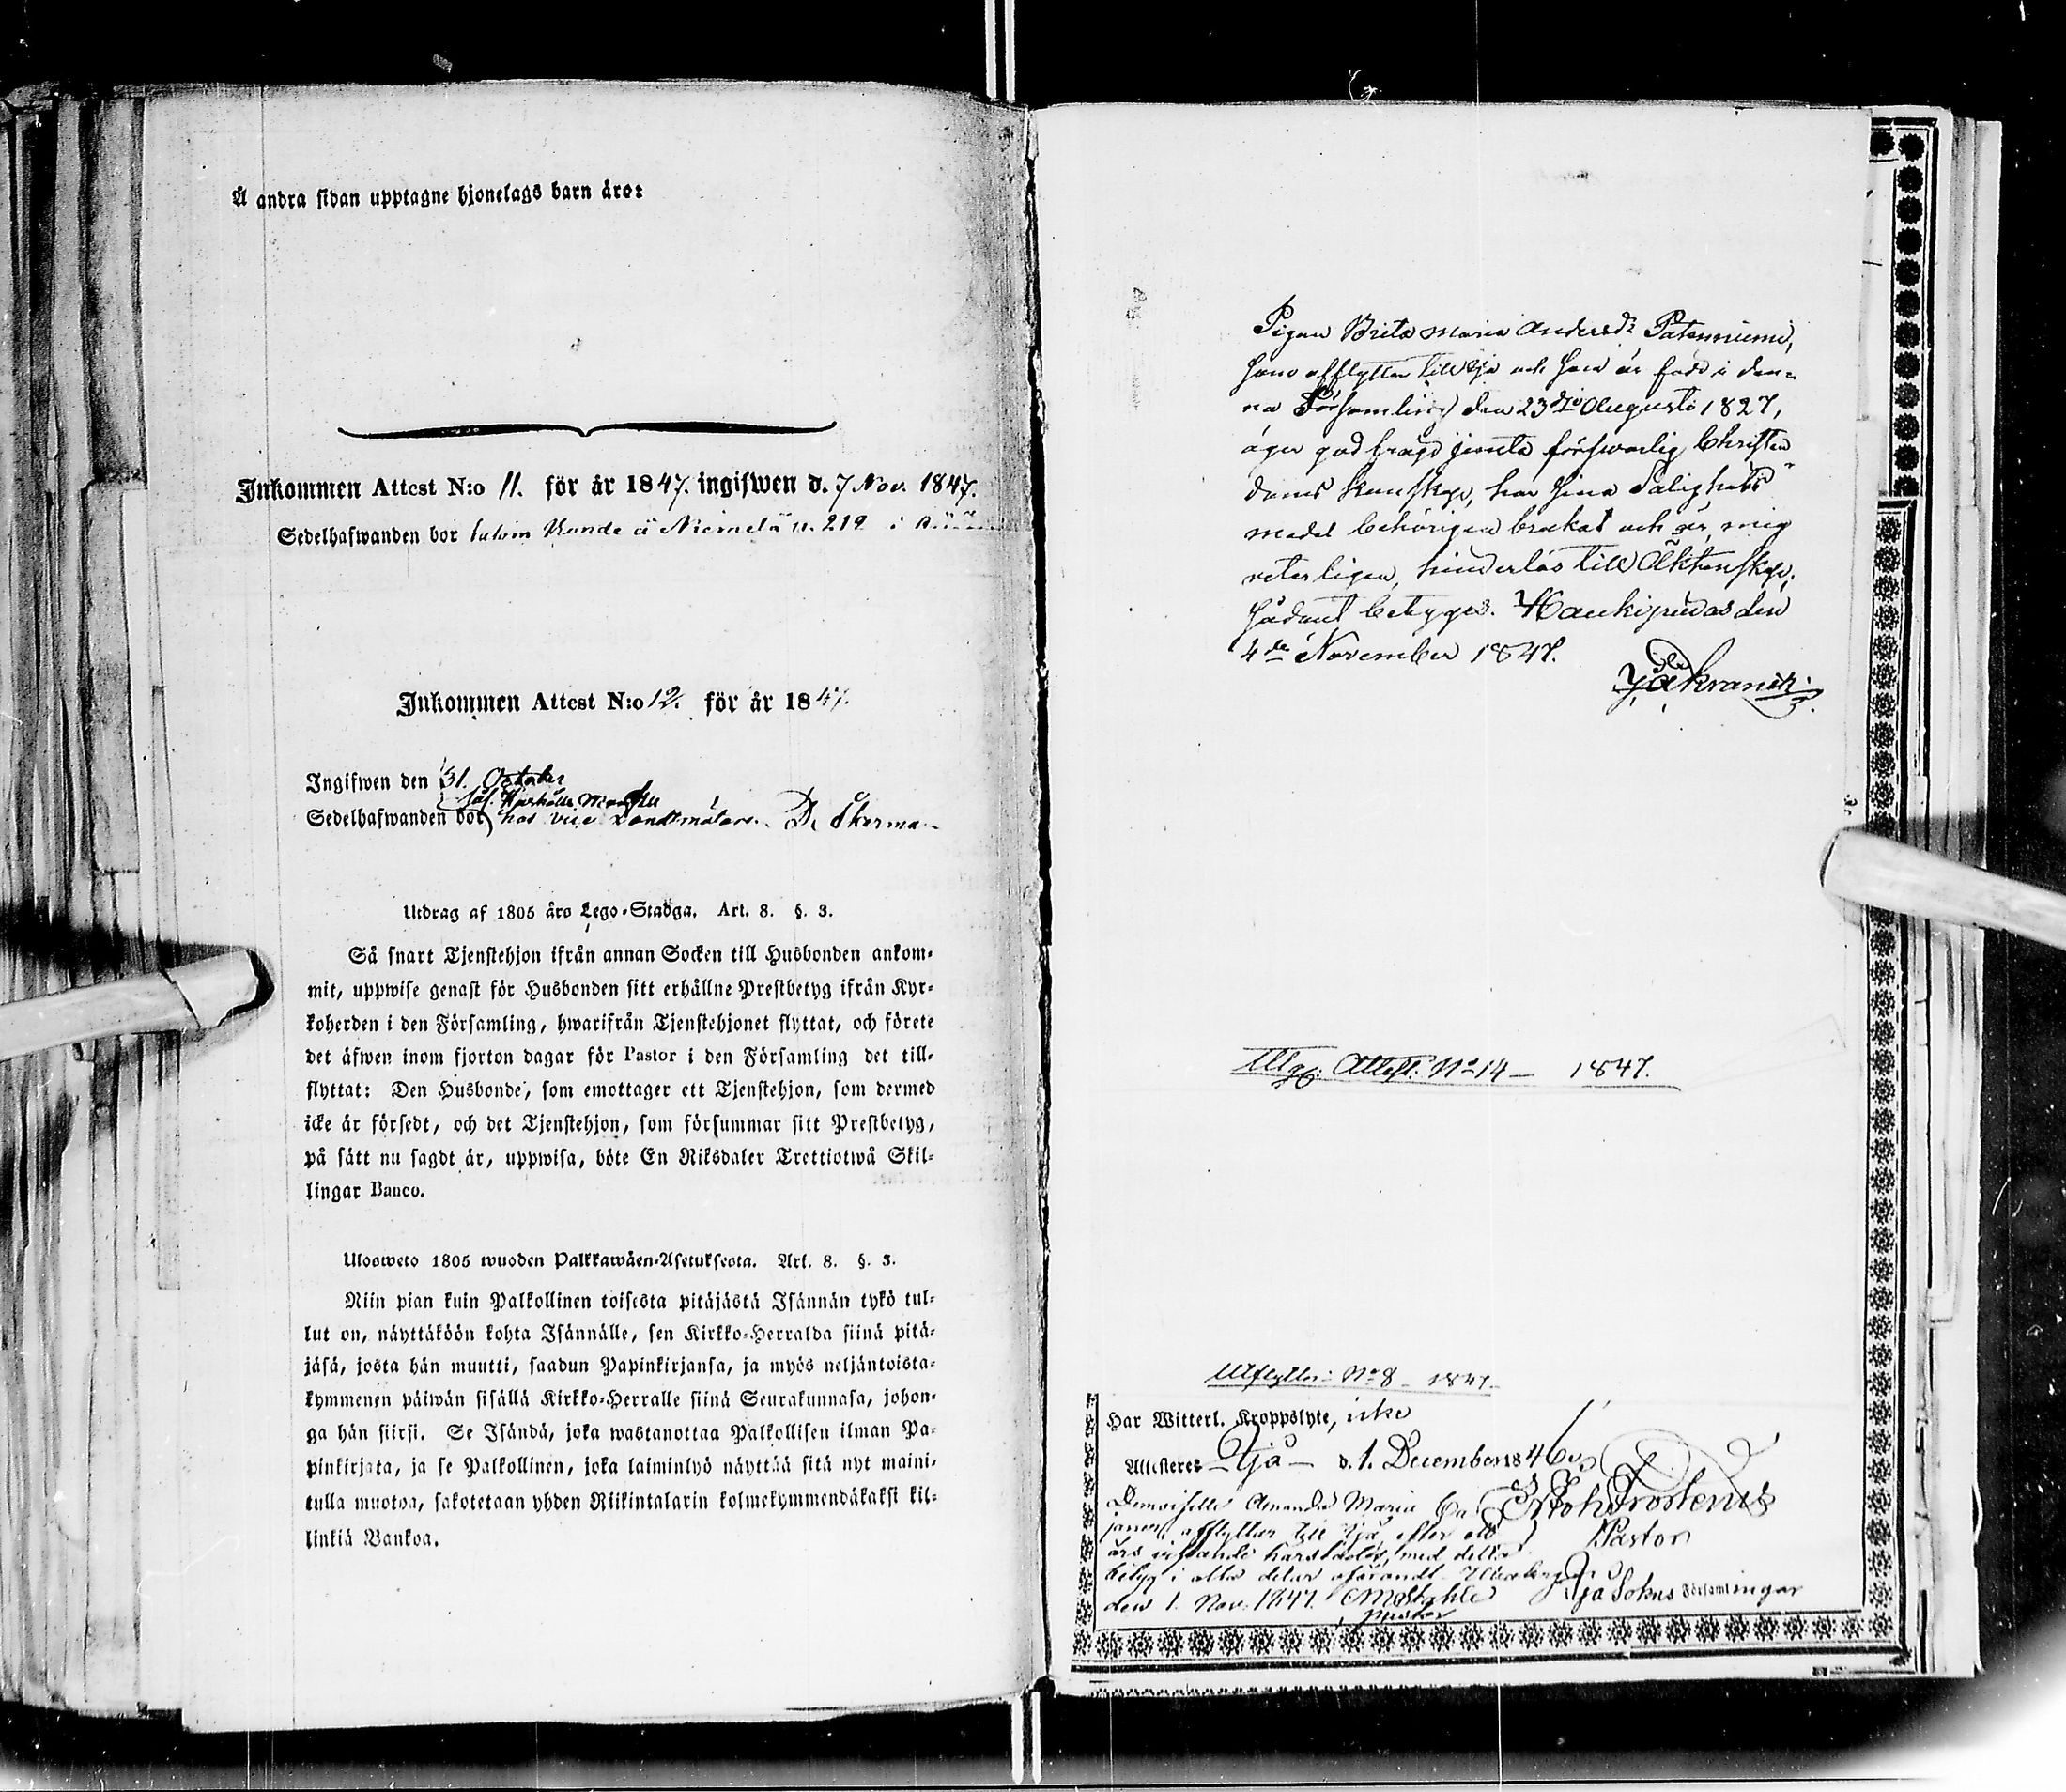 Å andra sidan upptagne hjonelags barn äro:
Inkommen Attest N:o 11. för år 1847. ingifwen d. 7 Nov. 1847.
Sedelhafwanden bor Bonde å Niemelä n. 212 i
Inkommen Attest N:o 12. för år 1847.
Ingifwen den 31. October
Sedelhafwanden bor hos vice Landtmätare D. Åkerman
Utdrag af 1805 års Lego-Stadga. Art. 8. §. 3.
Så snart Tjenstehjon ifrån annan Socken till Husbonden ankom-
mit, uppwise genast för Husbonden sitt erhållne Prestbetyg ifrån Kyr-
koherden i den Församling, hwarifrån Tjenstehjonet flyttat, och förete
det äfwen inom fjorton dagar för Pastor i den Församling det till-
flyttat: Den Husbonde, som emottager ett Tjenstehjon, som dermed
icke är försedt, och det Tjenstehjon, som försummar sitt Prestbetyg,
på sätt nu sagdt är, uppwisa, böte En Riksdaler Trettiotwå Skil-
lingar Banco.
Ulosweto 1805 wuoden Palkkawäen-Asetuksesta. Art. 8. §. 3.
Niin pian kuin Palkollinen toisesta pitäjästä Isännän tykö tul-
lut on, näyttäköön kohta Isännälle, sen Kirkko-Herralda siinä pitä-
jäsä, josta hän muutti, saadun Papinkirjansa, ja myös neljäntoista-
kymmenen päiwän sisällä Kirkko-Herralle siinä Seurakunnasa, johon-
ga hän siirsi. Se Isändä, joka wastanottaa Palkollisen ilman Pa-
pinkirjata, ja se Palkollinen, joka laiminlyö näyttää sitä nyt maini-
tulla muotoa, sakotetaan yhden Riikintalarin kolmekymmendäkaksi kil-
linkiä Bankoa.
Pigan Brita Maria Andersdr Patenniemi,
som afflyttar till Ijo och som är född i den-
na Församling den 23dje Augusti 1827,
äger god frägd jemte förswarlig Christen-
doms kunskap, har sina Salighets
medel behörigen brukat och är, mig
veterligen, hinderlös till Äktenskap;
sådant betygas. Haukipudas den
4de November 1847.
Utg: Attest. No 14 — 1847.
Utflyttn: No 8 — 1847.
Har Witterl. Kroppslyte, icke
Attesteras Ijo d. 1. December 1846
Demoiselle Amanda Maria
afflyttar till Ijo, efter ett
års vistande härstädes, med detta
betyg i alla delar oförändt.
Pastor
den 1. Nov. 1847.
Pastor
Ijo Sokns Församlingar